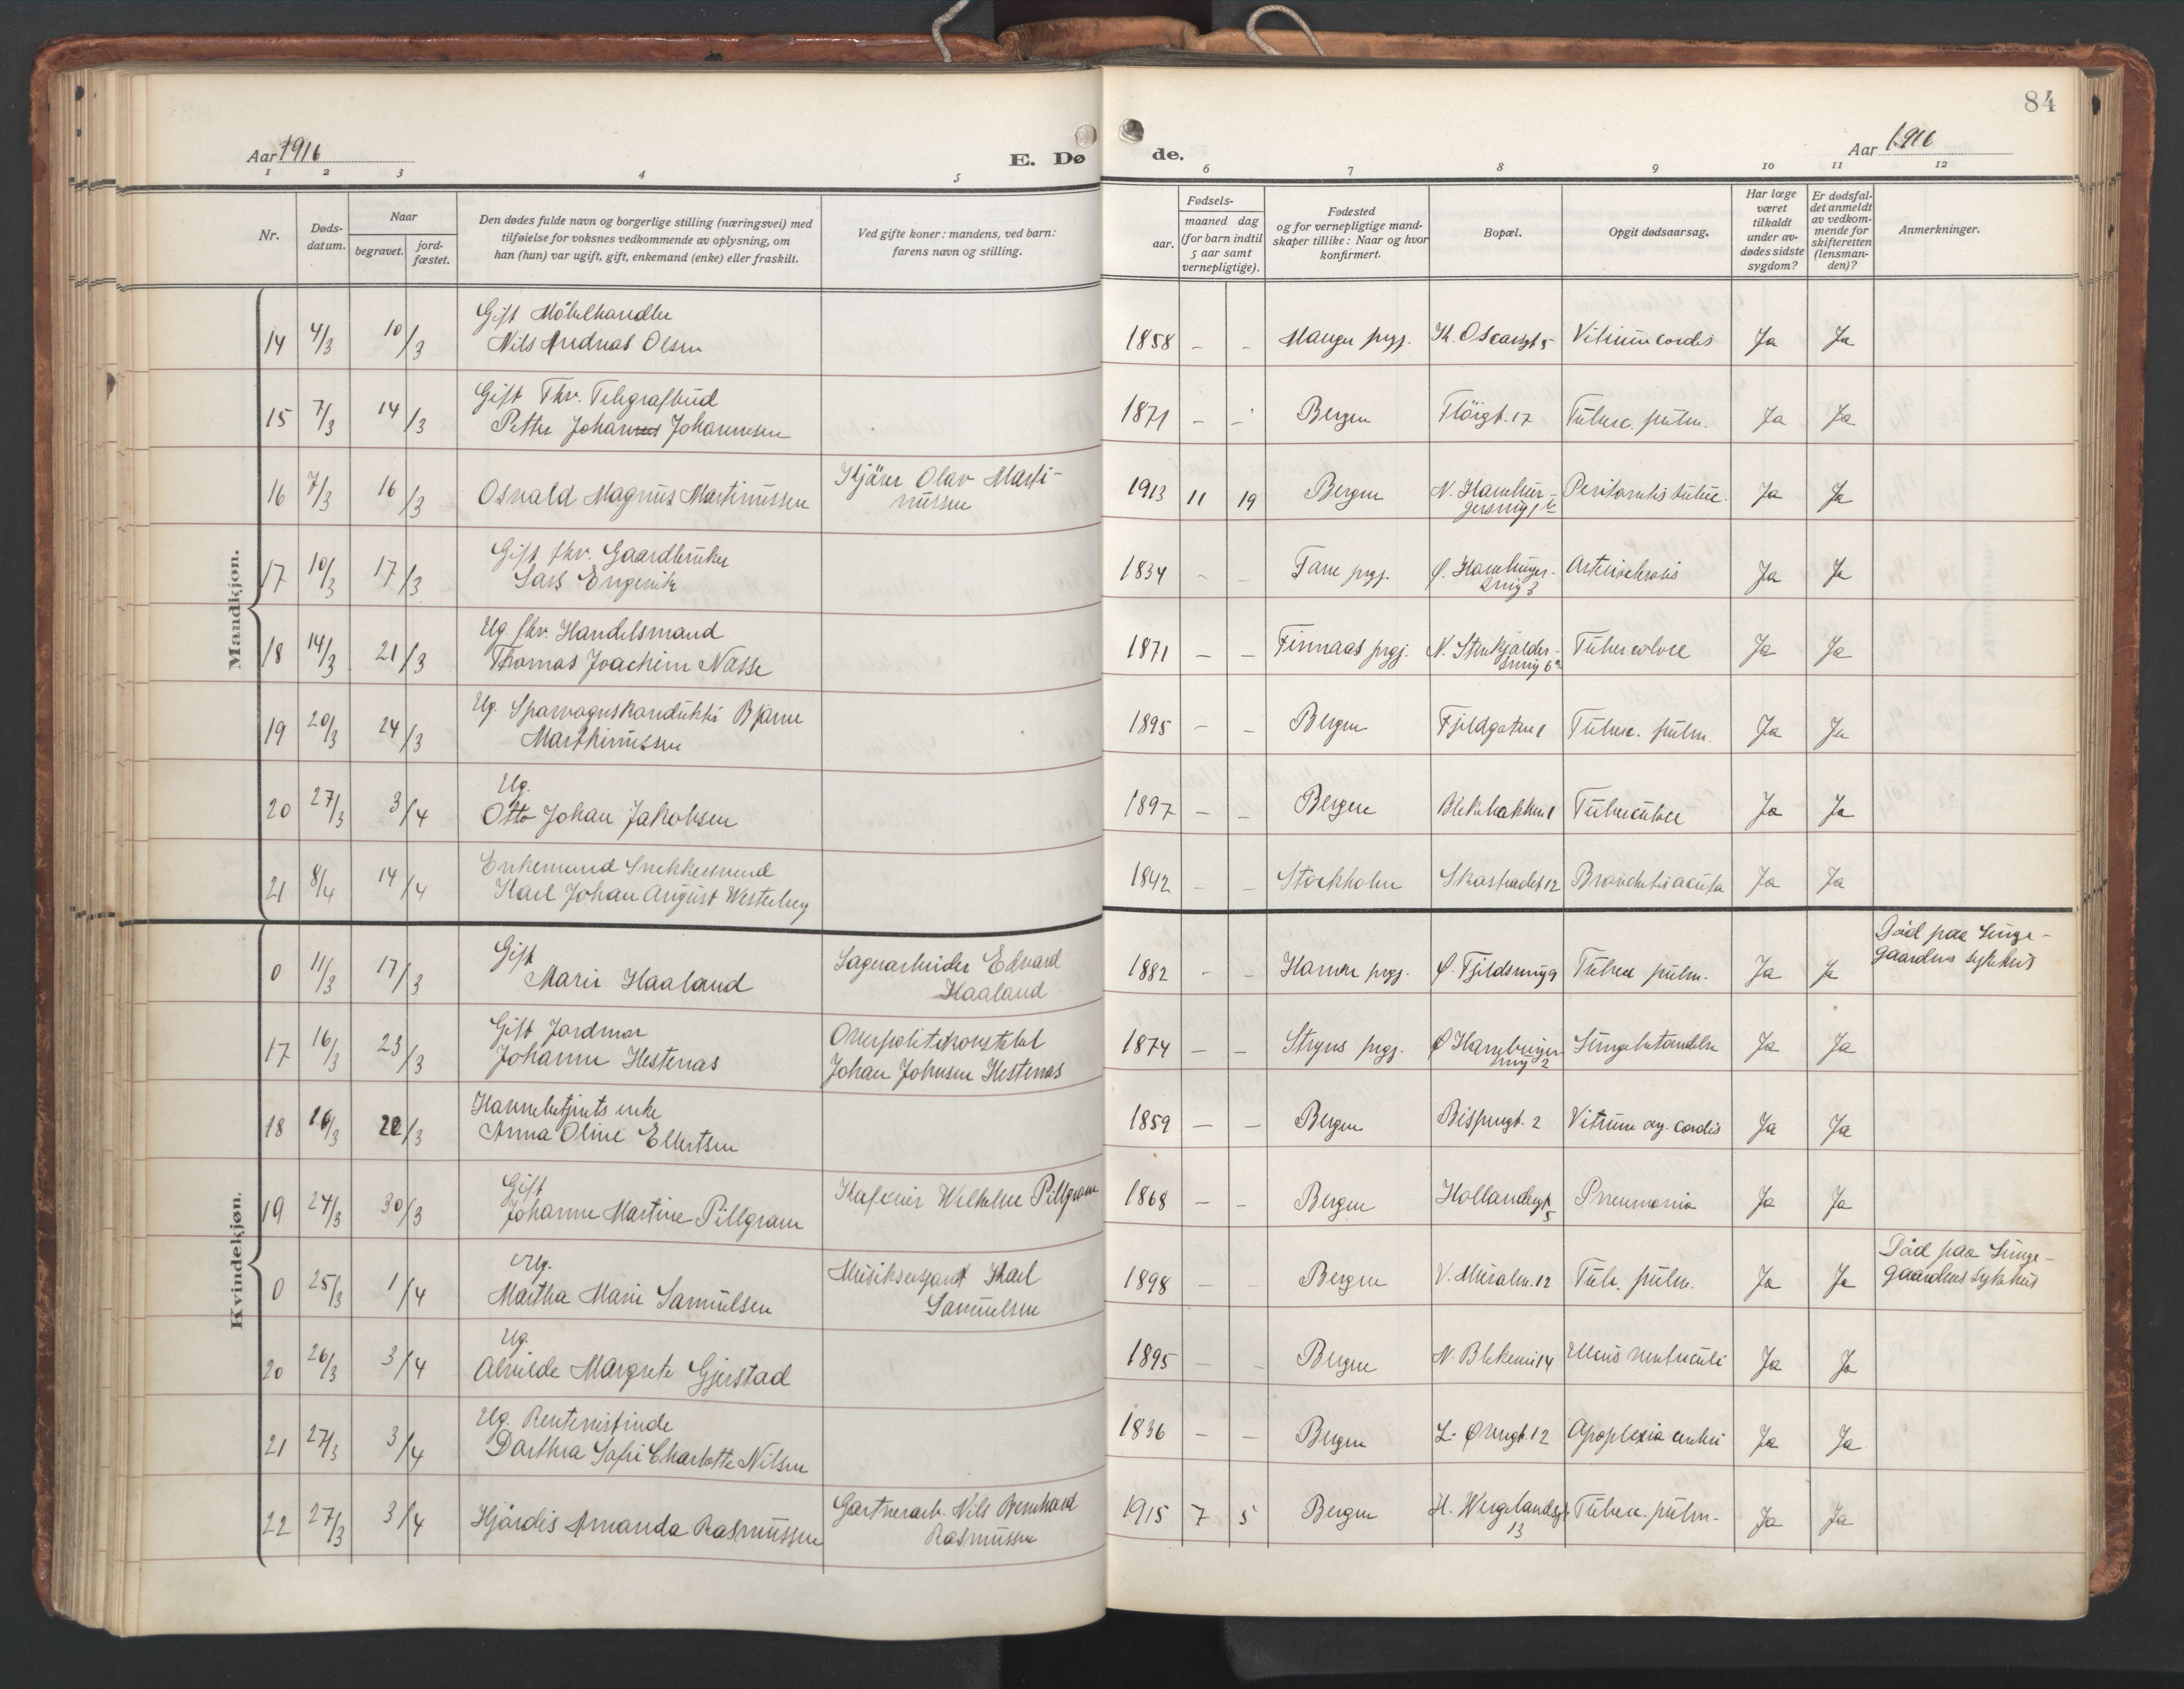 84
Aar 1916
E. Dø
de.
Aar 1916
1 2 3 4 5 6 7 8 9 10 11 12
Nr.
Døds-
datum.
Naar
begravet.
jord-
fæstet.
Den dødes fulde navn og borgerlige stilling (næringsvei) med
tilføielse for voksnes vedkommende av oplysning, om
han (hun) var ugift, gift, enkemand (enke) eller fraskilt.
Ved gifte koner: mandens, ved barn:
farens navn og stilling.
Fødsels-
aar.
maaned dag
(for barn indtil
5 aar samt
vernepligtige).
Fødested
og for vernepligtige mand-
skaper tillike: Naar og hvor
konfirmert.
Bopæl.
Opgit dødsaarsag.
Har læge
været
tilkaldt
under av-
dødes sidste
sygdom?
Er dødsfal-
det anmeldt
av vedkom-
mende for
skifteretten
(lensman-
den)?
Anmerkninger.
Mandkjøn.
14 4/3 10/3 Gift Möbelhandler
Nils Andreas Olsen
1858 – – Manger prgj. K. Oscarsgt 5 Vitium cordis Ja Ja
15 7/3 14/3 Gift Fhv. Telegrafbud
Petter Johannes Johannesen
1871 – – Bergen Fløigt. 17 Tuberc. pulm. Ja Ja
16 7/3 16/3 Osvald Magnus Martinussen
Kjører Olav Marti-
nussen
1913 11 19 Bergen N. Hambur-
gersmug Peritonitis tuberc. Ja Ja
17 10/3 17/3 Gift fhv. Gaardbruker
Lars Engevik
1834 – – Fane prgj. Ø. Hamburger-
smug 3 Arteriosclerosis Ja Ja
18 14/3 21/3 Ug. fhv. Handelsmand
Thomas Joachim Næsse
1871 – – Finnaas prgj. N. Stenkjælder-
smug 6a Tuberculose Ja Ja
19 20/3 24/3 Ug. Sporvognskonduktør Bjarne
Marthinussen
1895 – – Bergen Fjeldgaten 1 Tuberc. pulm. Ja Ja
20 27/3 3/4 Ug.
Otto Johan Jakobsen
1897 – – Bergen Blekebakken 1 Tuberculose Ja Ja
21 8/4 14/4 Enkemand Snekkersvend
Karl Johan August Westerberg
1842 – – Stockholm Skostrædet 12 Bronchitis acuta Ja Ja
Kvindekjøn.
0 11/3 17/3 Gift
Marie Haaland
Lagerarbeider Edvard
Haaland
1882 – – Hamre prgj. Ø. Fjeldsmug 9 Tuberc pulm. Ja Ja
Død paa Lunge-
gaardens sykehus
17 16/3 23/3 Gift Jordmor
Johanne Hestenæs
Overpolitikonstabel
Johan Johnsen Hestenæs
1874 – – Stryns prgj. Ø Hamburger-
smug 2 Lungebetændelse Ja Ja
18 16/3 22/3 Havnebetjents enke
Anna Oline Ellertsen
1859 – – Bergen Bispengt. 2 Vitium org. cordis Ja Ja
19 24/3 30/3 Gift
Johanne Martine Pillgram
Kafeeier Wilhelm Pillgram
1868 – – Bergen Hollendergt
5 Pneumonia Ja Ja
0 25/3 1/4 Ug.
Martha Marie Samuelsen
Musiksersjant Karl
Samuelsen
1898 – – Bergen V. Muralm. 12 Tub. pulm. Ja Ja
Død paa Lunge-
gaardens sykehus
20 26/3 3/4 Ug.
Alvilde Margrete Gjerstad
1895 – – Bergen N. Blekevei 14 Ulcus ventriculi Ja Ja
21 27/3 3/4 Ug. Rentenistinde
Dorthea Sofie Charlotte Nilsen
1836 – – Bergen L. Øvregt. 12 Apoplexia cerebri Ja Ja
22 27/3 3/4 Hjördis Amanda Rasmussen
Gartnerarb. Nils Bernhard
Rasmussen
1915 7 5 Bergen H. Wergelandsgt
13 Tuberc. pulm. Ja Ja